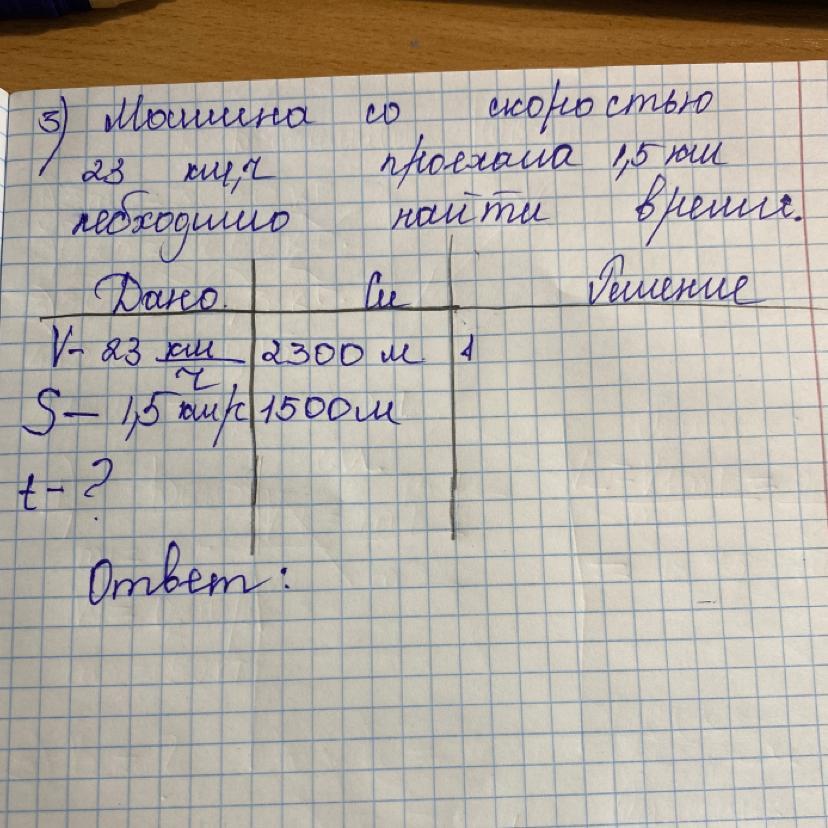 3) Машина со скоростью
23 км,ч проехала 1,5 км
необходимо найти время.
Дано. Си Решение
V- 23 км/ч 2300 м 1
S- 1,5 км/с 1500м
t- ?
Ответ: